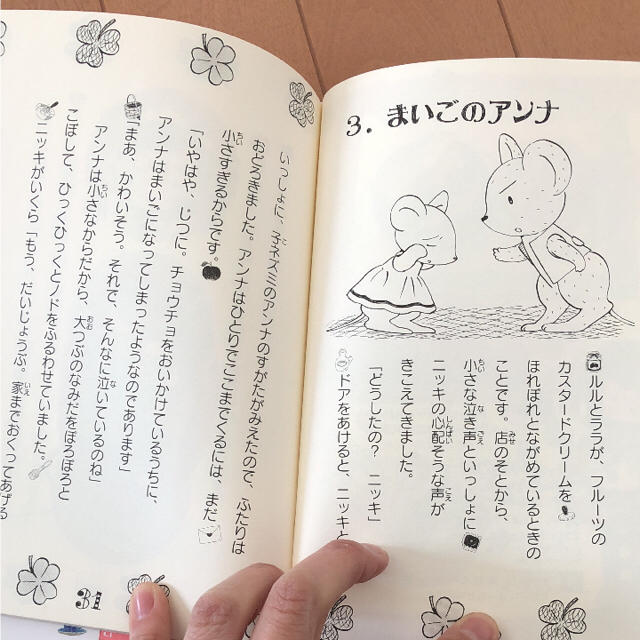 3. まいごのアンナ
ルルとララが、フルーツの
カスタードクリームを
ほれぼれとながめているときの
ことです。店のそとから、
小さな泣き声といっしょに
ニッキの心配そうな声が
きこえてきました。
「どうしたの？　ニッキ」
ドアをあけると、ニッキと
いっしょに、子ネズミのアンナのすがたがみえたので、ふたりは
おどろきました。アンナはひとりでここまでくるには、まだ
小さすぎるからです。
「いやはや、じつに。チョウチョをおいかけているうちに、
アンナはまいごになってしまったようなのであります」
「まあ、かわいそう。それで、そんなに泣いているのね」
アンナは小さなからだから、大つぶのなみだをぽろぽろと
こぼして、ひっくひっくとノドをふるわせていました。
ニッキがいくら「もう、だいじょうぶ。家までおくってあげる
31